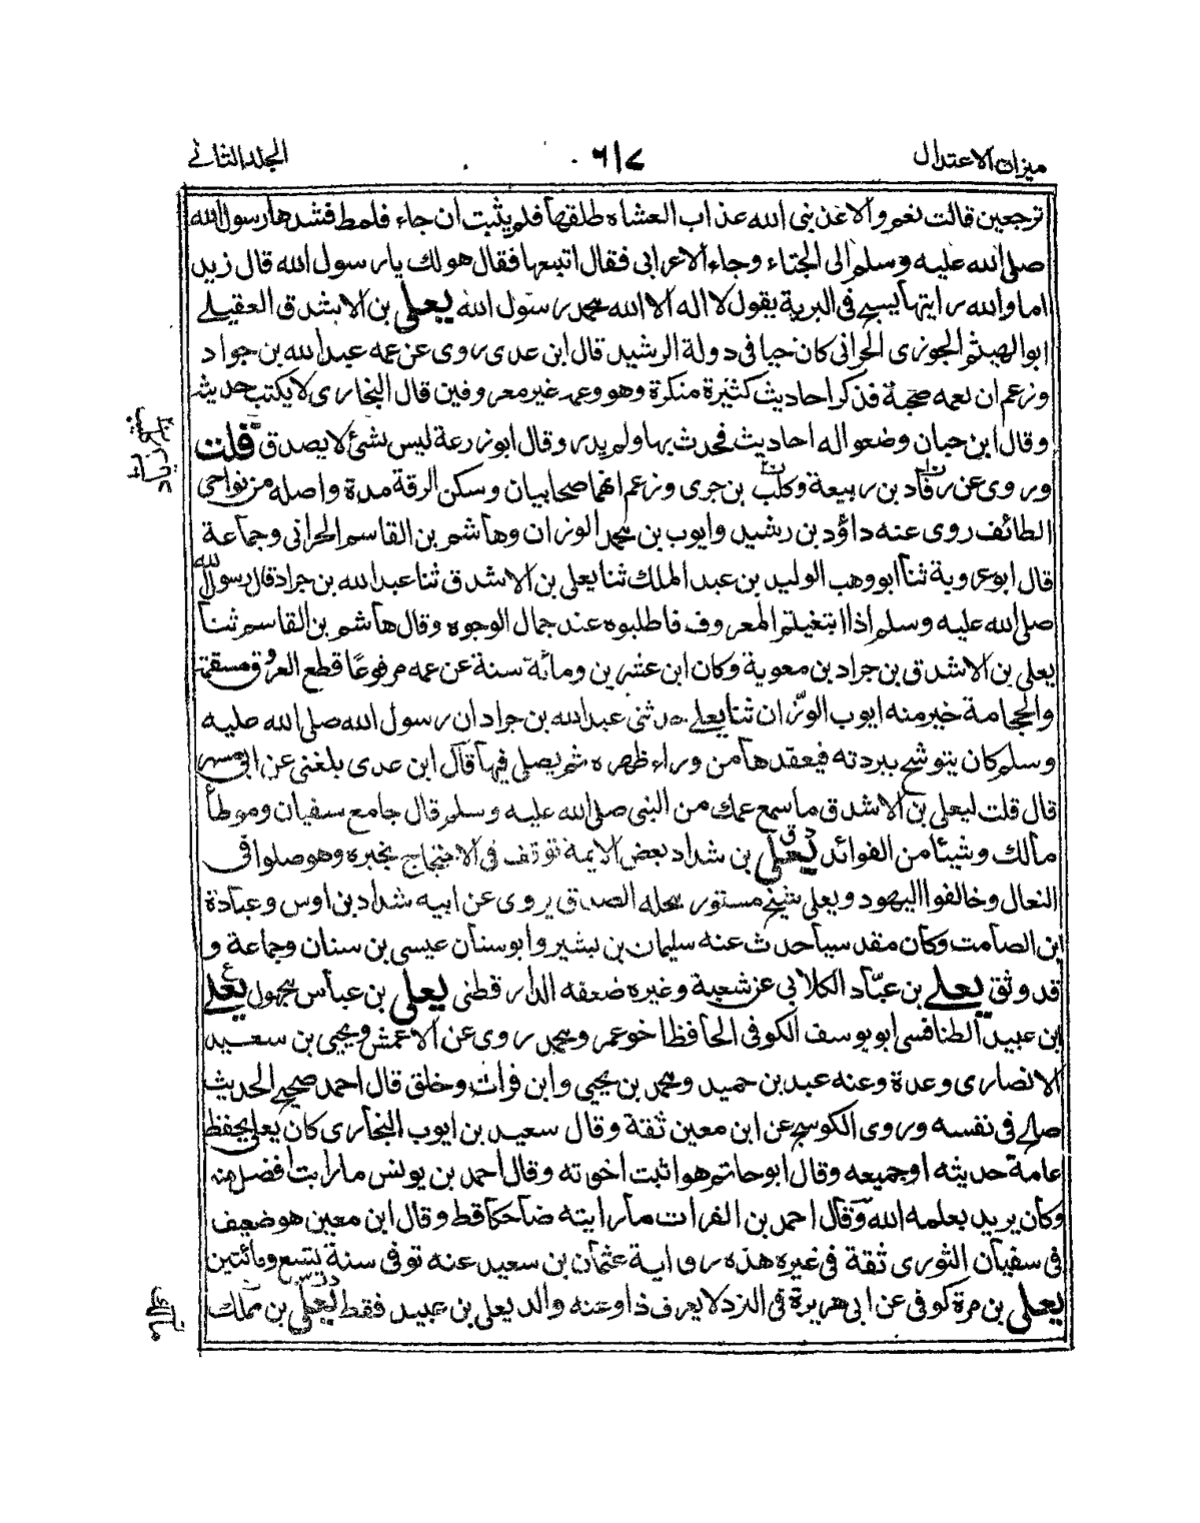 ميزان الاعتدال ٦١٧ المجلد الثاني
ترجعين قالت نعم والا عذبني الله عذاب العشار طلقها فلم يثبت ان جاء فلمط فشدها رسول الله
صلى الله عليه وسلم الى الخباء وجاء الاعرابى فقال اتبعها فقال هو لك يا رسول الله قال زيد
اما والله رايتها يسبح فى البرية يقول لا اله الا الله محمد رسول الله يعلى بن الاشدق العقيلے
ابو الهيثم الجوزى الحرانى كان حيا فى دولة الرشيد قال ابن عدى روى عن عمه عبد الله بن جراد
وزعم ان لعمه صحبة فذكر احاديث كثيرة منكرة وهو وعمه غير معروفين قال البخارى لا يكتب حديثه
وقال ابن حبان وضعوا له احاديث فحدث بها ولم يدر وقال ابو زرعة ليس بشئ لا يصدق قلت
وروى عن رقاد بن ربيعة وكليب بن جرى وزعم انهما صحابيان وسكن الرقة مدة واصله من نواحى
الطائف روى عنه داؤد بن رشيد وايوب بن محمد الوزان وهاشم بن القاسم الحرانى وجماعة
قال ابو عروبة ثنا ابو وهب الوليد بن عبد الملك ثنا يعلى بن الاشدق ثنا عبد الله بن جراد قال رسول الله
صلى الله عليه وسلم اذا ابتغيتم المعروف فاطلبوه عند جمال الوجوه وقال هاشم بن القاسم ثنا
يعلى بن الاشدق بن جراد بن معوية وكان ابن عشرين ومائة سنة عن عمه مرفوعًا قطع العروق مسقمة
والحجامة خير منه ايوب الوزّان ثنا يعلے حدثنى عبد الله بن جراد ان رسول الله صلى الله عليه
وسلم كان يتوشح ببردته فيعقدها من وراء ظهره ثم يصلى فيها قال ابن عدى بلغنى عن ابى مسهر
قال قلت ليعلى بن الاشدق ما سمع عمك من النبى صلى الله عليه وسلم قال جامع سفيان وموطأ
مالك وشيئا من الفوائد يعلى بن شداد بعض الايمة توقف فى الاحتجاج بخبره وهو صلوا فى
النعال وخالفوا اليهود ويعلى شيخ مستور محله الصدق يروى عن ابيه شداد بن اوس وعبادة
ابن الصامت وكان مقدسيا حدث عنه سليمان بن بشير وابو سنان عيسى بن سنان وجماعة و
قد وثق يعلے بن عبّاد الكلابى عن شعبة وغيره ضعفه الدارقطنى يعلى بن عباس مجهول يعلے
بن عبيد الطنافسى ابو يوسف الكوفى الحافظ اخو عمر ومحمد روى عن الاعمش ويحيى بن سعيد
الانصارى وعدة وعنه عبد بن حميد ومحمد بن يحيى وابن فرات وخلق قال احمد صحيح الحديث
صالح فى نفسه وروى الكوسج عن ابن معين ثقة وقال سعيد بن ايوب البخارى كان يعلى يحفظ
عامة حديثه او جميعه وقال ابو حاتم هو اثبت اخوته وقال احمد بن يونس ما رايت افضل منه
وكان يريد بعلمه الله وقال احمد بن الفرات ما رايته ضاحكا قط وقال ابن معين هو ضعيف
فى سفيان الثورى ثقة فى غيره هذه رواية عثمان بن سعيد عنه توفى سنة تسع ومائتين
يعلى بن مرة كوفى عن ابى هريرة فى النرد لا يعرف ذا وعنه والد يعلى بن عبيد فقط يعلى بن مملك